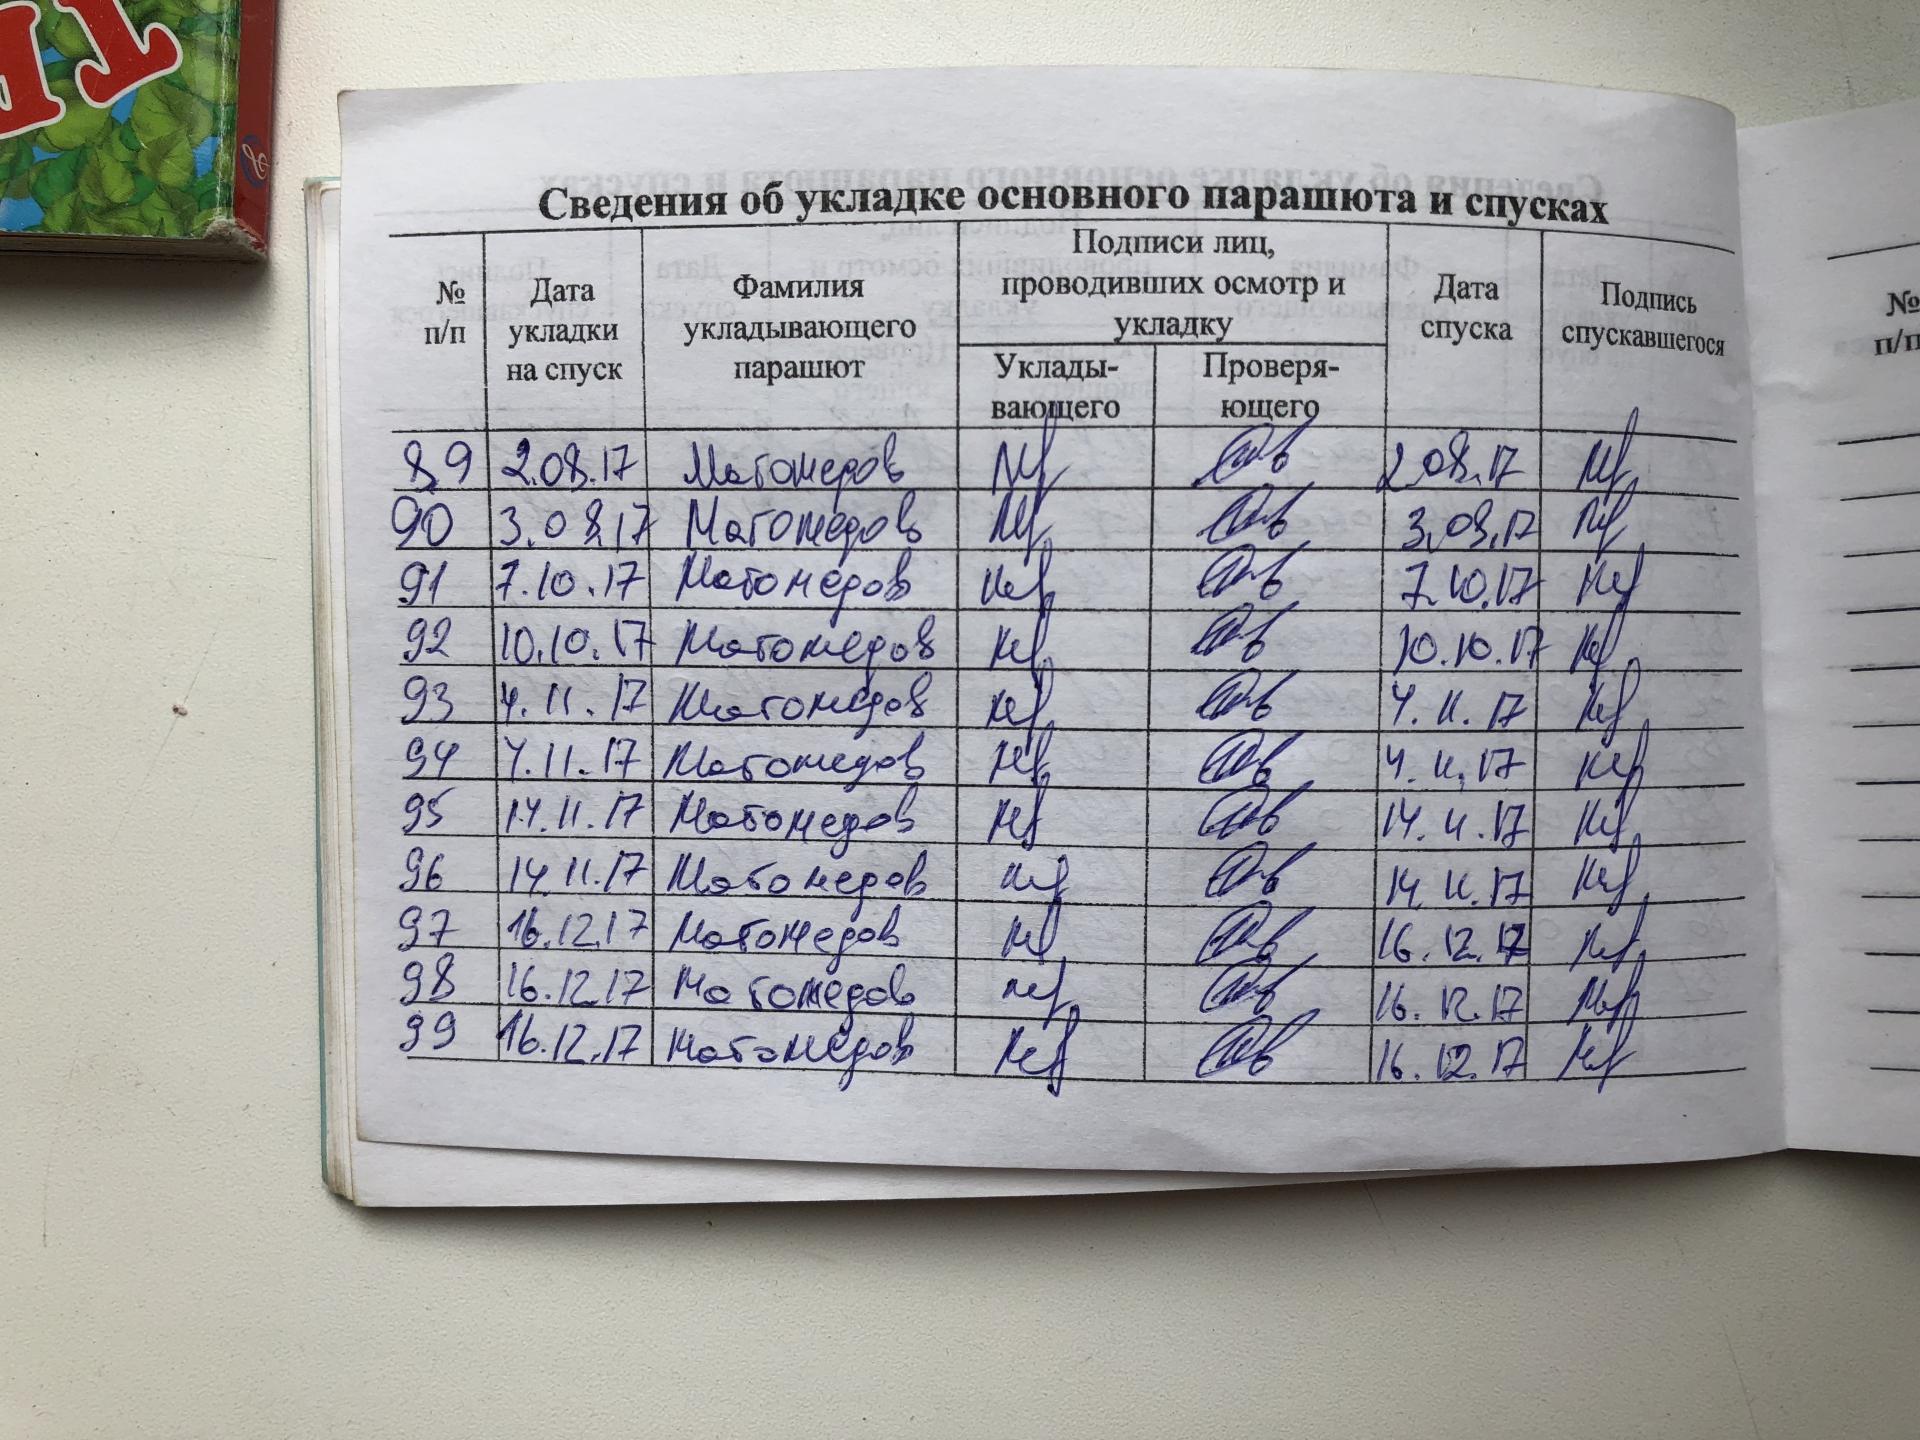 Сведения об укладке основного парашюта и спусках
№ п/п
Дата укладки на спуск
Фамилия укладывающего парашют
Подписи лиц, проводивших осмотр и укладку
Уклады-
вающего
Проверя-
ющего
Дата спуска
Подпись спускавшегося
89 2.08.17 Магомедов 2.08.17
90 3.08.17 Магомедов 3.08.17
91 7.10.17 Магомедов 7.10.17
92 10.10.17 Магомедов 10.10.17
93 4.11.17 Магомедов 4.11.17
94 4.11.17 Магомедов 4.11.17
95 14.11.17 Магомедов 14.11.17
96 14.11.17 Магомедов 14.11.17
97 16.12.17 Магомедов 16.12.17
98 16.12.17 Магомедов 16.12.17
99 16.12.17 Магомедов 16.12.17
№
п/п